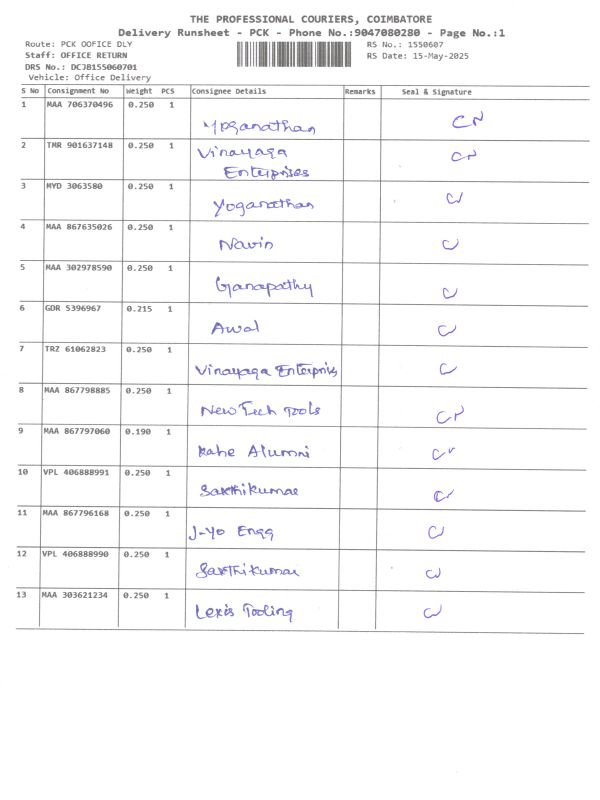 THE PROFESSIONAL COURIERS, COIMBATORE
Delivery Runsheet - PCK - Phone No.:9047080280 - Page No.:1
Route: PCK OOFICE DLY RS No.: 1550607
Staff: OFFICE RETURN RS Date: 15-May-2025
DRS No.: DCJB155060701
Vehicle: Office Delivery
S No Consignment No Weight PCS Consignee Details Remarks Seal & Signature
1 MAA 706370496 0.250 1
Yoganathan
2 TMR 901637148 0.250 1 Vinayaga
Enterprises
3 MYD 3063580 0.250 1
Yoganathan
4 MAA 867635026 0.250 1
Navin
5 MAA 302978590 0.250 1
Ganapathy
6 GDR 5396967 0.215 1
Awal
7 TRZ 61062823 0.250 1
Vinayaga Enterpris
8 MAA 867798885 0.250 1
New Tech Tools
9 MAA 867797060 0.190 1
Kahe Alumni
10 VPL 406888991 0.250 1
Sakthikumar
11 MAA 867796168 0.250 1
J-Yo Engg
12 VPL 406888990 0.250 1
Sakthikumar
13 MAA 303621234 0.250 1
Lexis Tooling